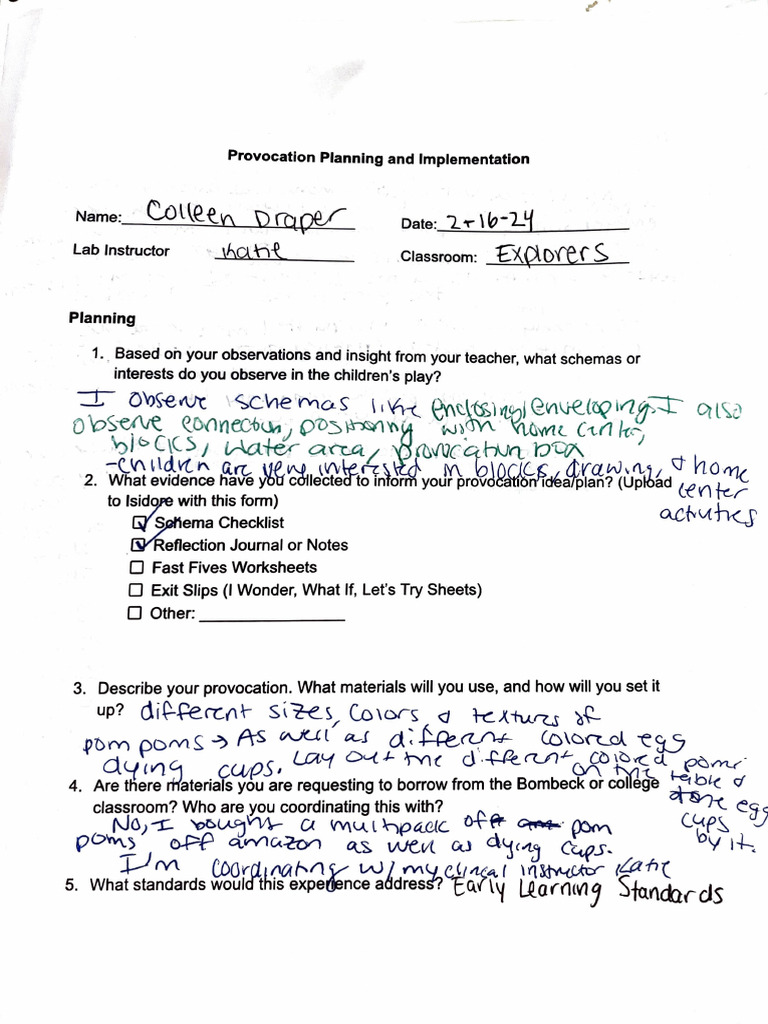 Provocation Planning and Implementation
Name: Colleen Draper Date: 2-16-24
Lab Instructor Katie Classroom: Explorers
Planning
1. Based on your observations and insight from your teacher, what schemas or
interests do you observe in the children's play?
I observe schemas like enclosing/enveloping. I also
observe connection, positioning with home center,
blocks, water area, provocation box
-children are very interested in blocks, drawing, & home
center
activities
2. What evidence have you collected to inform your provocation idea/plan? (Upload
to Isidore with this form)
Schema Checklist
Reflection Journal or Notes
Fast Fives Worksheets
Exit Slips (I Wonder, What If, Let's Try Sheets)
Other:
3. Describe your provocation. What materials will you use, and how will you set it
up? different sizes, colors & textures of
pom poms → As well as different colored egg
dying cups. Lay out the different colored poms
on the table &
egg
cups
by it.
4. Are there materials you are requesting to borrow from the Bombeck or college
classroom? Who are you coordinating this with?
No, I bought a multipack of pom
poms off amazon as well as dying cups.
I'm coordinating w/ my clinical instructor Katie
5. What standards would this experience address? Early Learning Standards